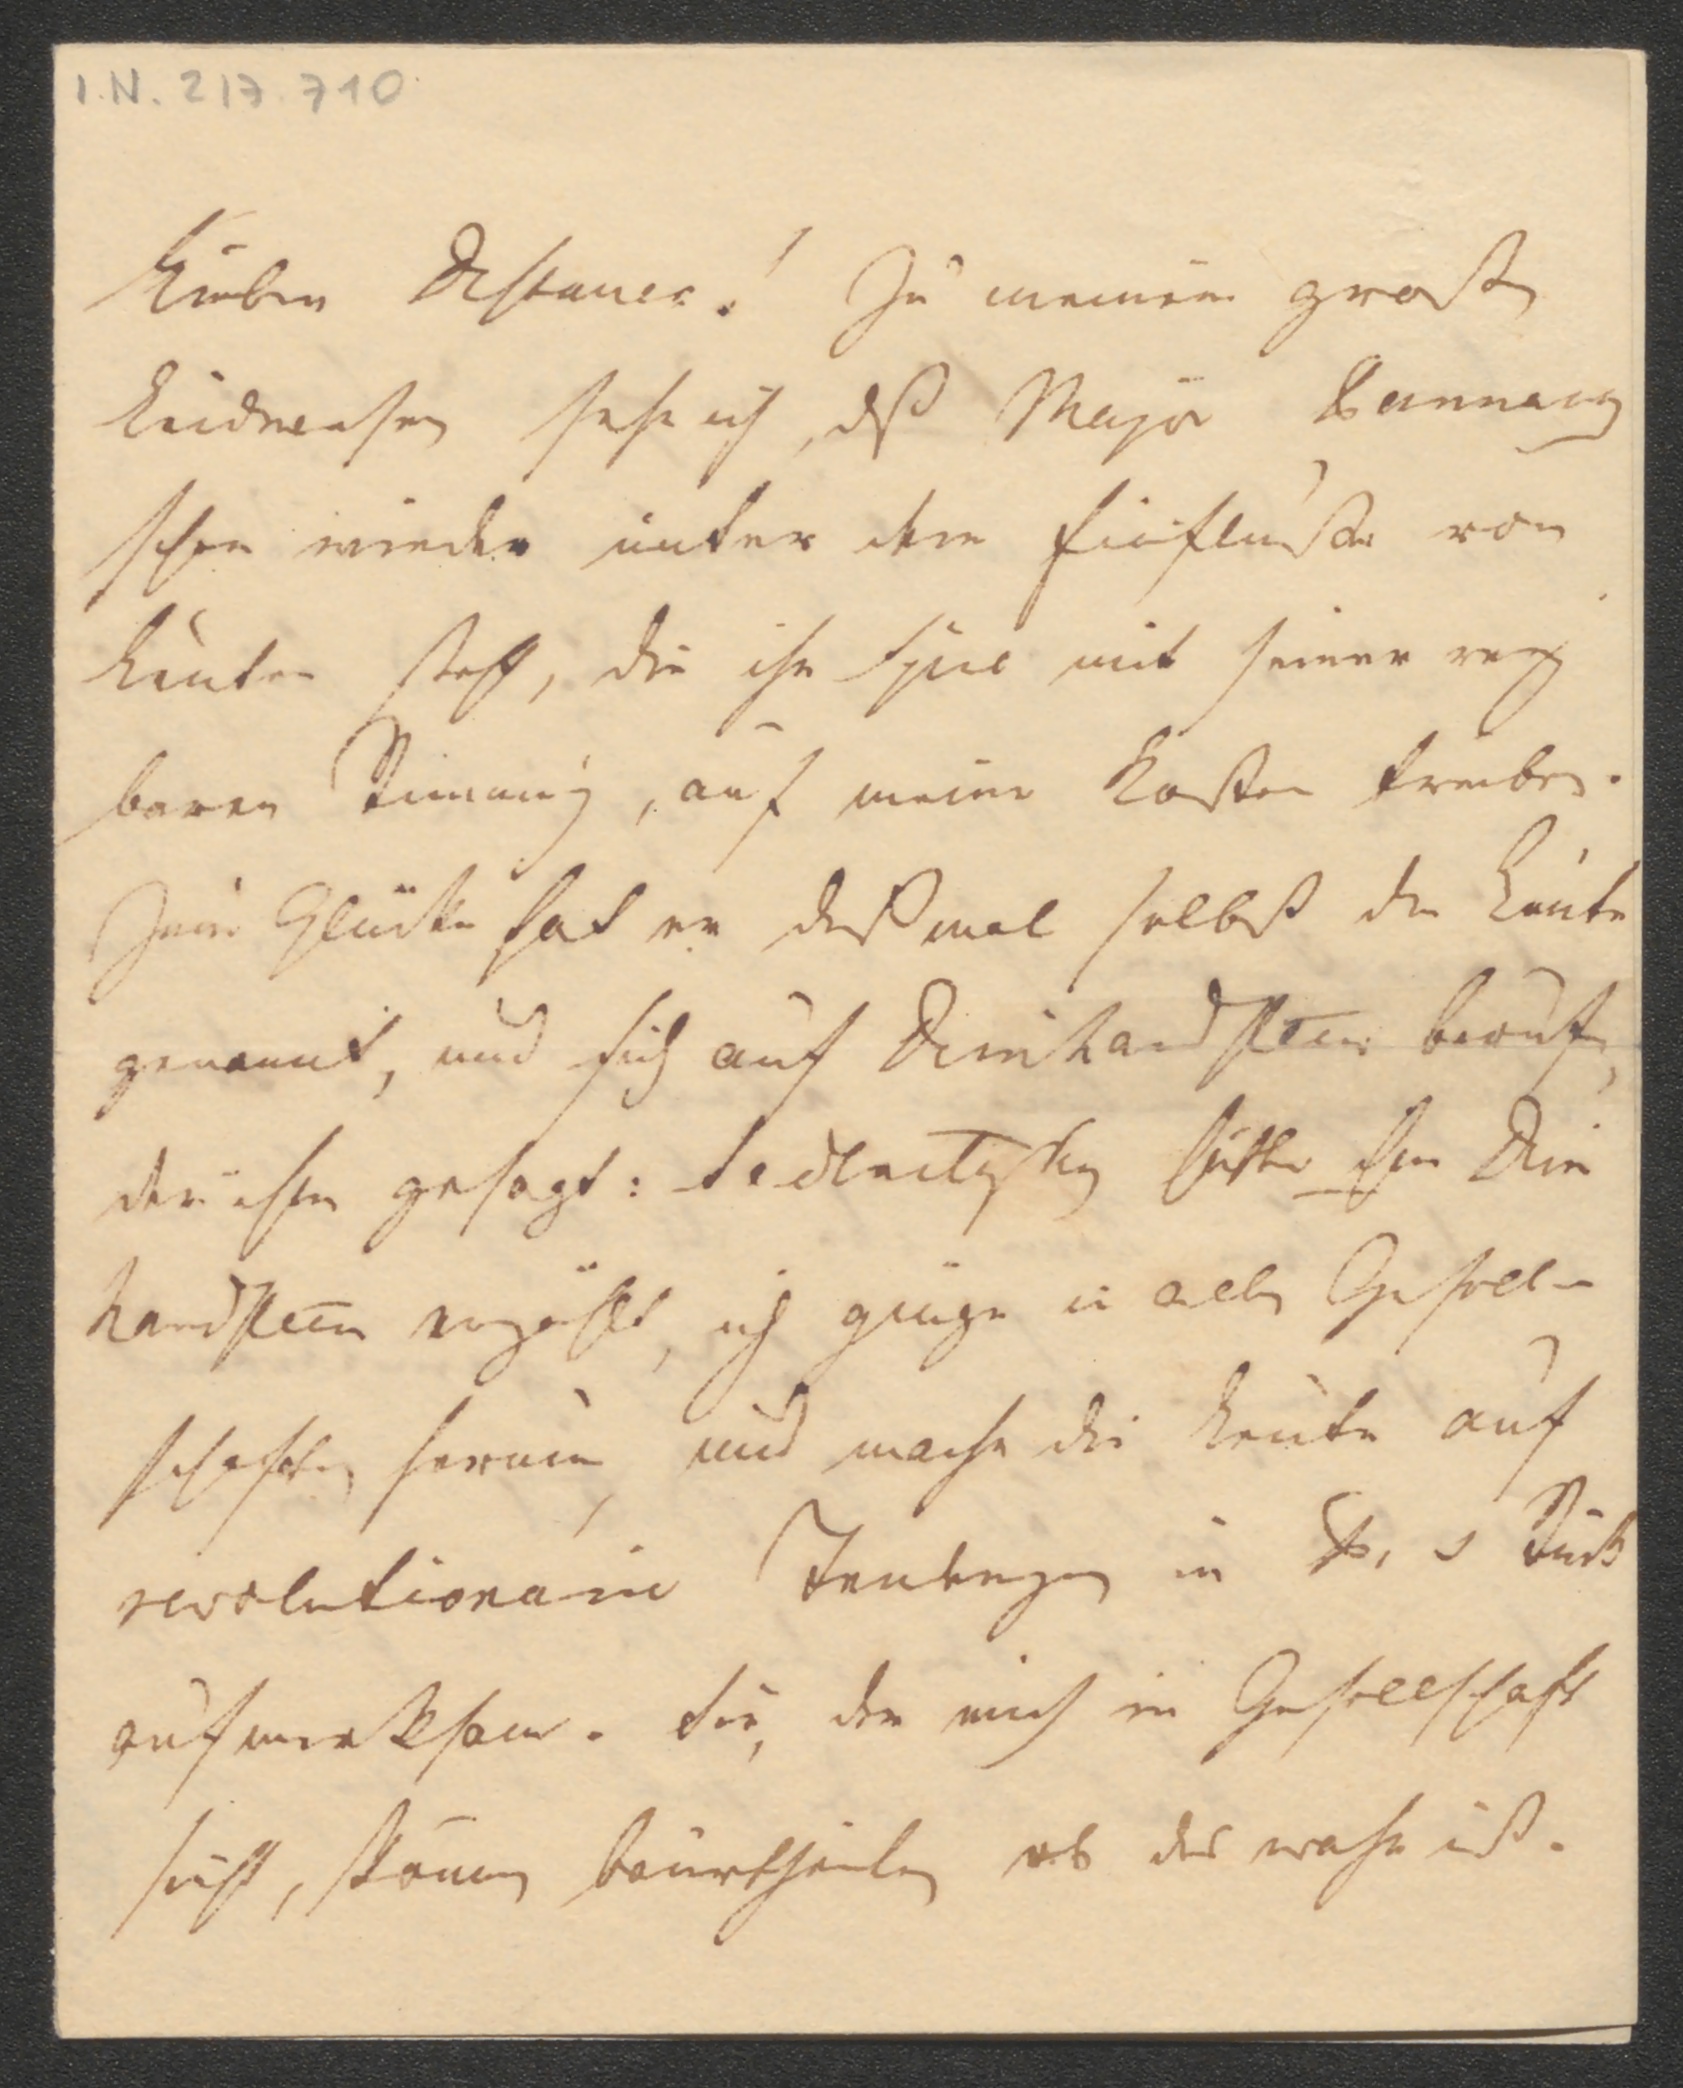 I.N. 217.710
Lieber Destauer! Zu meinem großen
Leidwesen sehe ich, daß Major
schon wieder unter dem Einfluße von
Leuten steht, die ihr Spiel mit seiner reitz
baren Stimmung, auf meine Kosten treiben.
Zum Glücke hat er dießmal selbst die Leute
genannt, und sich auf Deinhardstein berufen,
der ihm gesagt: Sedlnitzky hätte ihm Dein
hardstein erzählt, ich ginge in allen Gesell-
schaften herum, und mache die Leute auf
revolutionaire Tendenzen in Stück
aufmerksam. Sie, der mich in Gesellschaft
sieht, können beurtheilen ob das wahr ist.